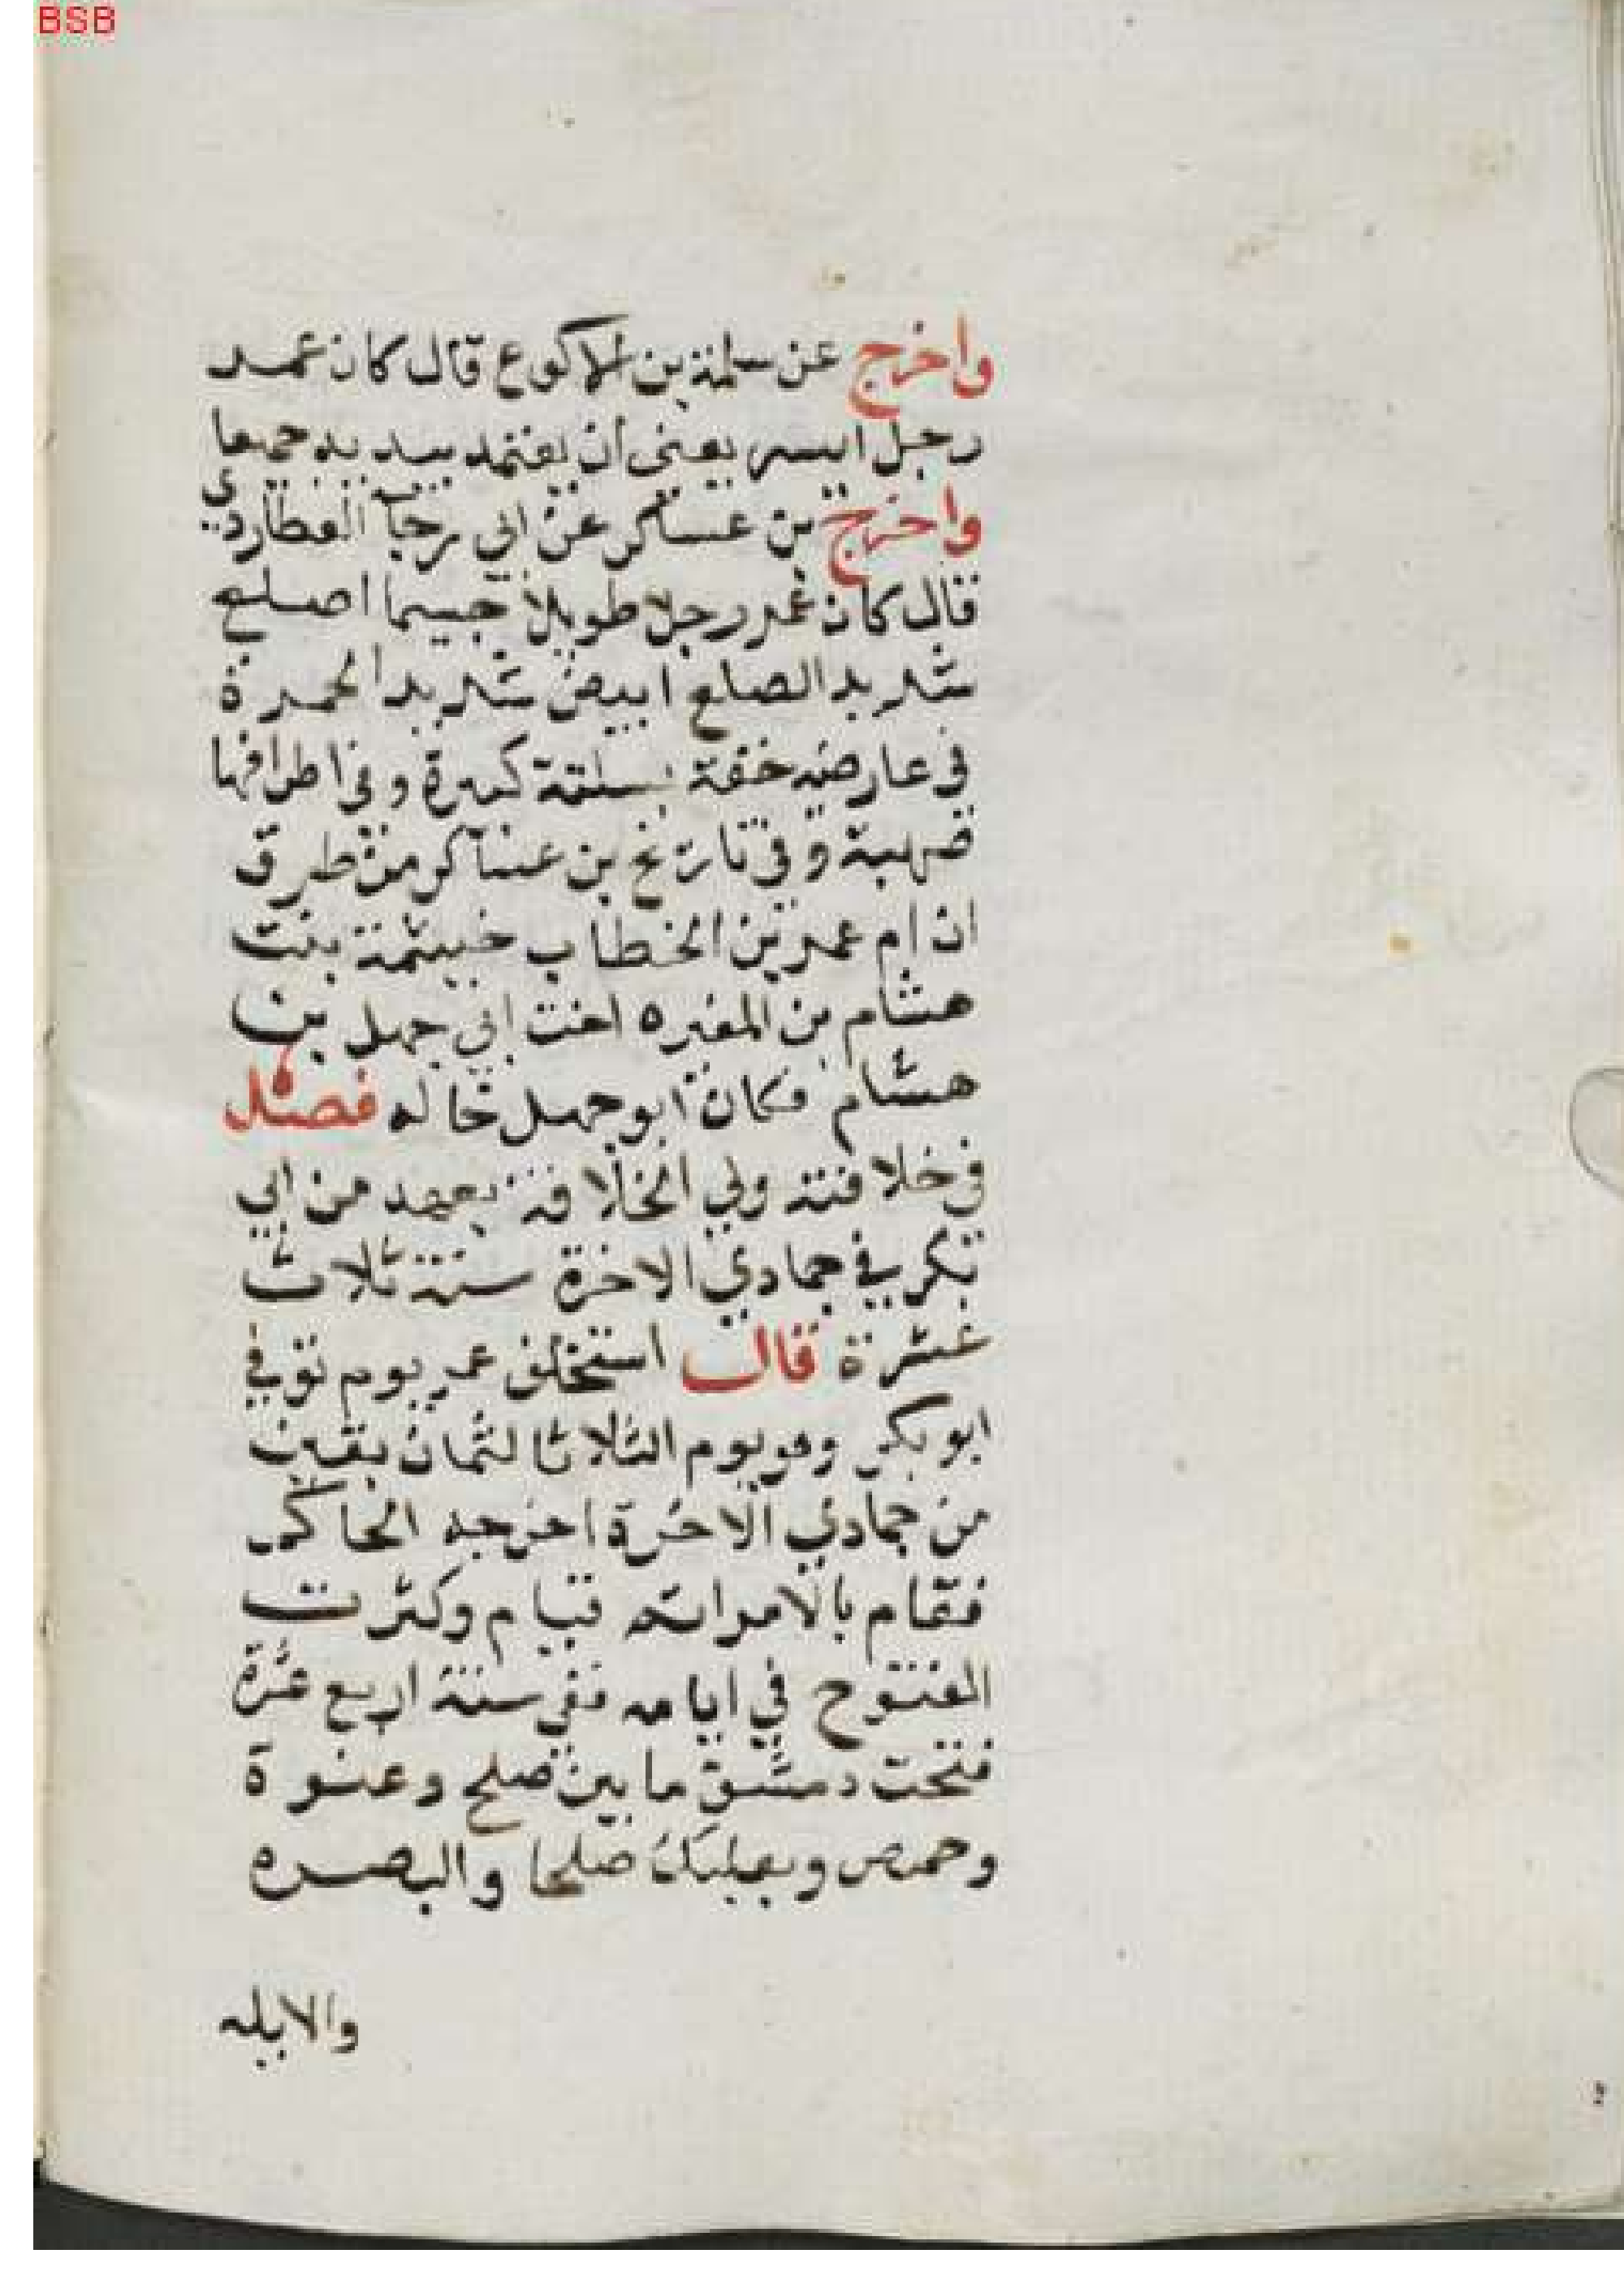 BSB
واخرج عن سلمة بن الاكوع قال كان عمر
رجل ايسر يعنى ان يعتمد بيديه جميعا
واخرج بن عساكر عن ابي رجآ العطاردي
قال كان عمر رجلا طويلا جسيما اصلع
شديد الصلع ابيض شديد الحمرة
في عارضيه خفة سبلته كبيرة وفي اطرافها
صهبة وفي تاريخ بن عساكر من طرق
ان ام عمر بن الخطاب خيثمة بنت
هشام بن المغيره اخت ابي جهل بن
هشام فكان ابو جهل خاله فصل
في خلافته ولي الخلافة بعهد من ابي
بكر في جمادي الاخرة سنة ثلاث
عشرة قال استخلف عمر يوم توفي
ابو بكر وهو يوم الثلاثا لثمان بقين
من جمادي الاخرة اخرجه الحاكم
فقام بالامر اتم قيام وكثرت
الفتوح في ايامه ففي سنة اربع عشرة
فتحت دمشق ما بين صلح وعنوة
وحمص وبعلبك صلحا والبصره
والابله